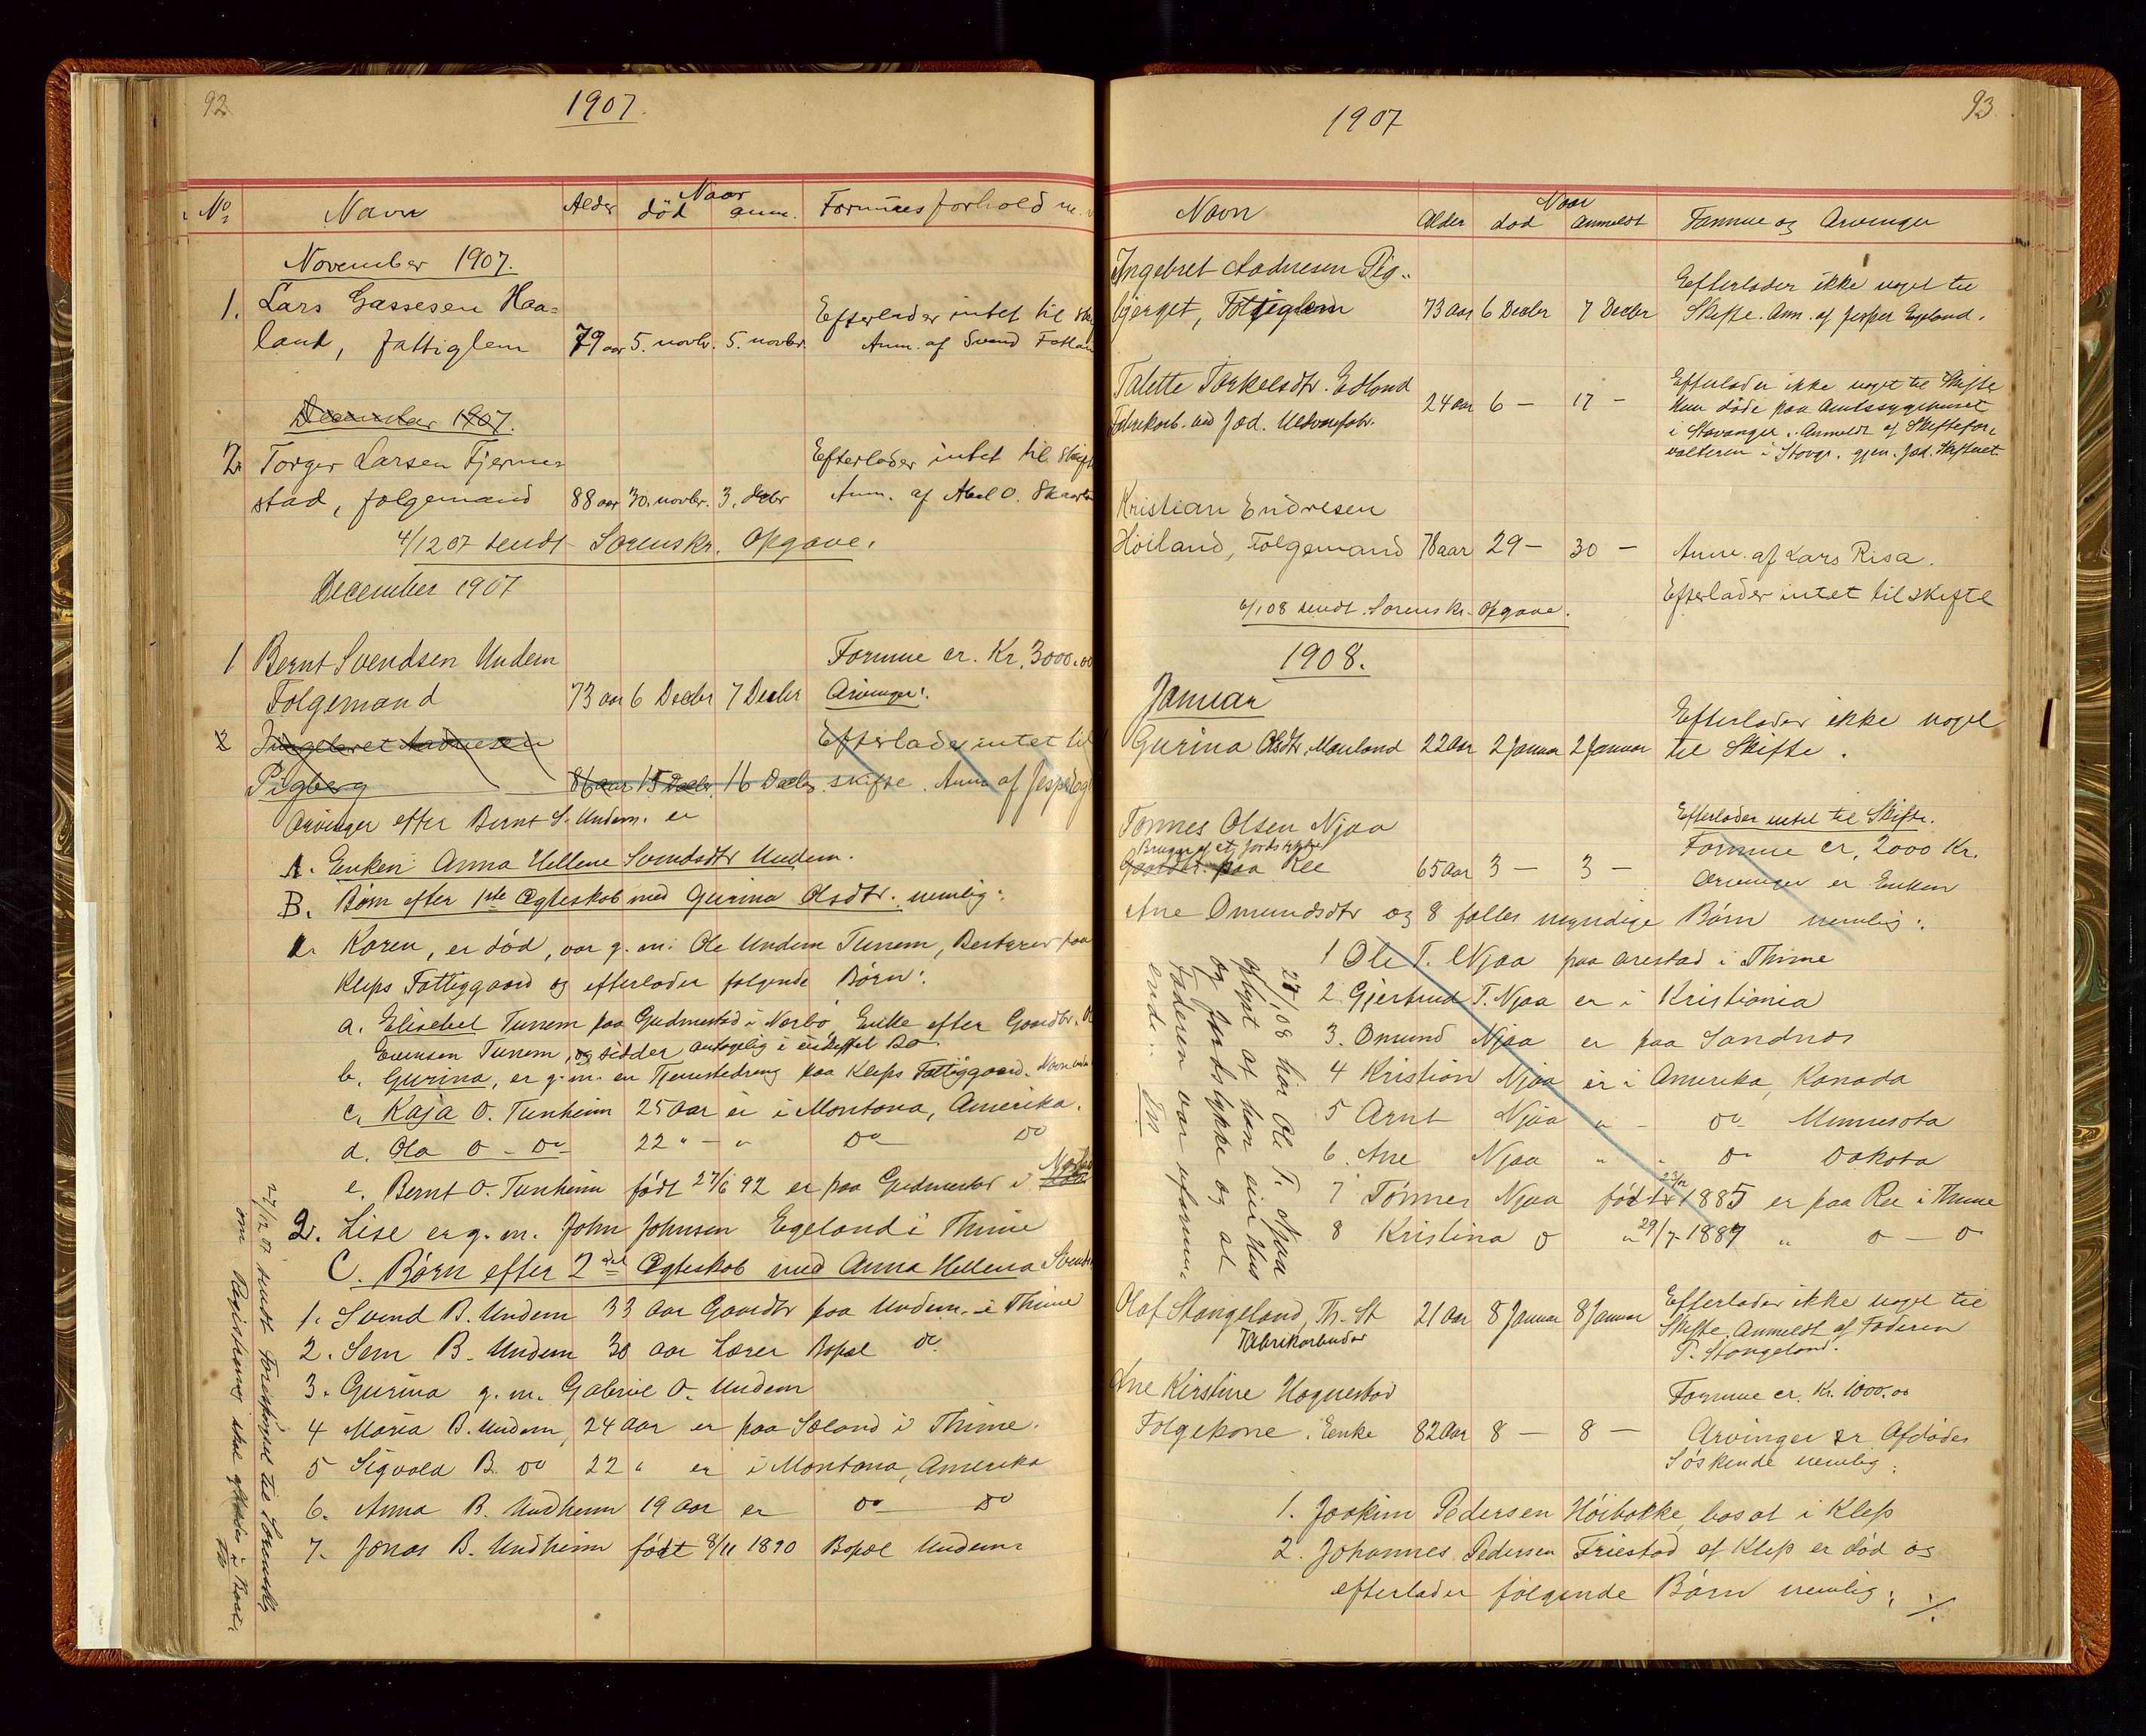 92
1907.
No Navn Alder Naar død anm. Formuesforhold m.
November 1907.
1. Lars Gassesen Haa-
land, fattiglem 79 aar 5. novbr. 5. novbr. Efterlader intet til
Anm. af Svend
December 1907.
2. Torger Larsen Fjerme-
stad, folgemand 88 aar 30. novbr. 3. decbr Efterlader intet til skifte
Anm. af Abel O.
4/12 07 sendt Sorenskr. Opgave.
December 1907
1 Bernt Svendsen Undem Formue er. Kr. 3000.00
Folgemand 73 aar 6 Decbr 7 Decbr Arvinger:
2 Ingebret Aadnesen Efterlader intet til
Pigberg 86 aar 15 Decbr. 16 Decbr skifte. Anm af Jesper
Arvinger efter Bernt S. Undem. er
A. Enken Anna Hellene Svendsdtr Undem.
B. Børn efter 1ste Ægteskab med Gurina Olsdtr. nemlig:
1. Karen, er død, var g. m. Ole Undem Tunem, Bestyrer paa
Kleps Fattiggaard og efterlader følgende Børn:
a. Elisebet Tunem paa Gudmestad i Nærbø, Enke efter Gaardbr.
Evensen Tunem, og sidder antagelig i uskiftet Bo.
b. Gurina, er g. m. en Tjenestedreng paa Kleps Fattiggaard.
c. Kaja O. Tunheim 25 Aar er i Montana, Amerika.
d. Ola O - Do 22 " - " Do Do
e. Bernt O. Tunheim født 27/6 92 er paa Gudmestad i Nærbø
2. Lise er g. m. John Johnsen Egeland i Thime
C. Børn efter 2det Ægteskab med Anna Hellena
1. Svend B. Undem 33 Aar Gaardbr paa Undem. i Thime
2. Sem B. Undem 30 aar Lærer Bopæl Do
3. Gurina g. m. Gabriel O. Undem
4 Maria B. Undem, 24 aar er paa Sæland i Thime.
5 Sigvald B. Do 22 " er i Montana, Amerika
6. Anna B. Undheim 19 aar er Do Do
7. Jonas B. Undheim født 8/11 1890 Bopæl Undem
27/12 07 sendt Forespørgsel til Sorenskr.
om Registrering skal i Boet
93.
1907
Navn Alder Naar død Anmeldt Formue og Arvinger
Ingebret Aadnesen Pig-
bjerget, Fattiglem 73 aar 6 Decbr 7 Decbr Efterlader ikke noget til
Skifte. Anm. af Jesper Egeland.
Talette Torkelsdtr. Edland 24 aar 6 - 17 - Efterlader ikke noget til Skifte
Fabrikarb. ved Jæd. Uldvarefabr. Hun døde paa Amtssygehuset
i Stavanger. Anmeldt af Skiftefor-
valteren i Stavgr. gjen. Jæd. Skifteret
Kristian Endresen
Höiland, Folgemand 78 aar 29 - 30 - Anm. af Lars Risa.
Efterlader intet til skifte
6/1 08 sendt Sorenskr. Opgave.
1908.
Januar
Gurina Olsdtr. Mauland 22 Aar 2 Januar 2 Januar Efterlader ikke noget
til Skifte.
Tønnes Olsen Njaa Efterlader intet til Skifte.
Bruger af et Jordstykke
Gaardbr. paa Ree 65 Aar 3 - 3 - Formue er. 2000 Kr.
Arvinger er Enken
Ane Omundsdtr og 8 fælles myndige Børn nemlig:
1 Ole T. Njaa paa Arestad i Thime
2 Gjertrud T. Njaa er i Kristiania
3. Omund Njaa er paa Sandnæs
4 Kristian Njaa er i Amerika, Kanada
5 Arnt Njaa " - Do Minnesota
6. Ane Njaa " - Do Dakota
7 Tønnes Njaa født 23/12 1885 er paa Ree i Thime
8 Kristina O " 29/7 1889 " O - O
27/1 08 har Ole T. Njaa
oplyst at han eier Hus
og Jordstykke og at
Faderen var uformu-
ende.
Olaf Stangeland, Th. St 21 Aar 8 Januar 8 Januar Efterlader ikke noget til
Fabrikarbeider Skifte. Anmeldt af Faderen
T. Stangeland.
Ane Kirstine Hognestad Formue er. Kr. 1000.00
Folgekone. Enke 82 Aar 8 - 8 - Arvinger er Afdødes
Søskende nemlig:
1. Joakim Pedersen Höibakke, bosat i Klep
2. Johannes Pedersen Friestad af Klep er død og
efterlader følgende Børn nemlig: ./.